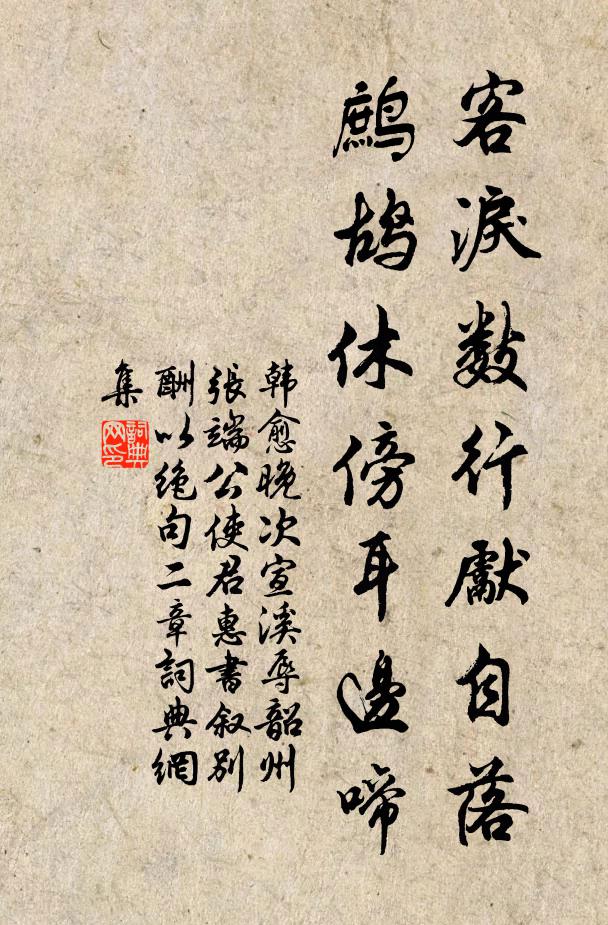 客淚数行獻自落
鷓鴣休傍耳邊啼
韓愈晚次宣溪辱韶州
張端公使君惠書叙别
酬以絶句二章詞典網
集
詞典网印